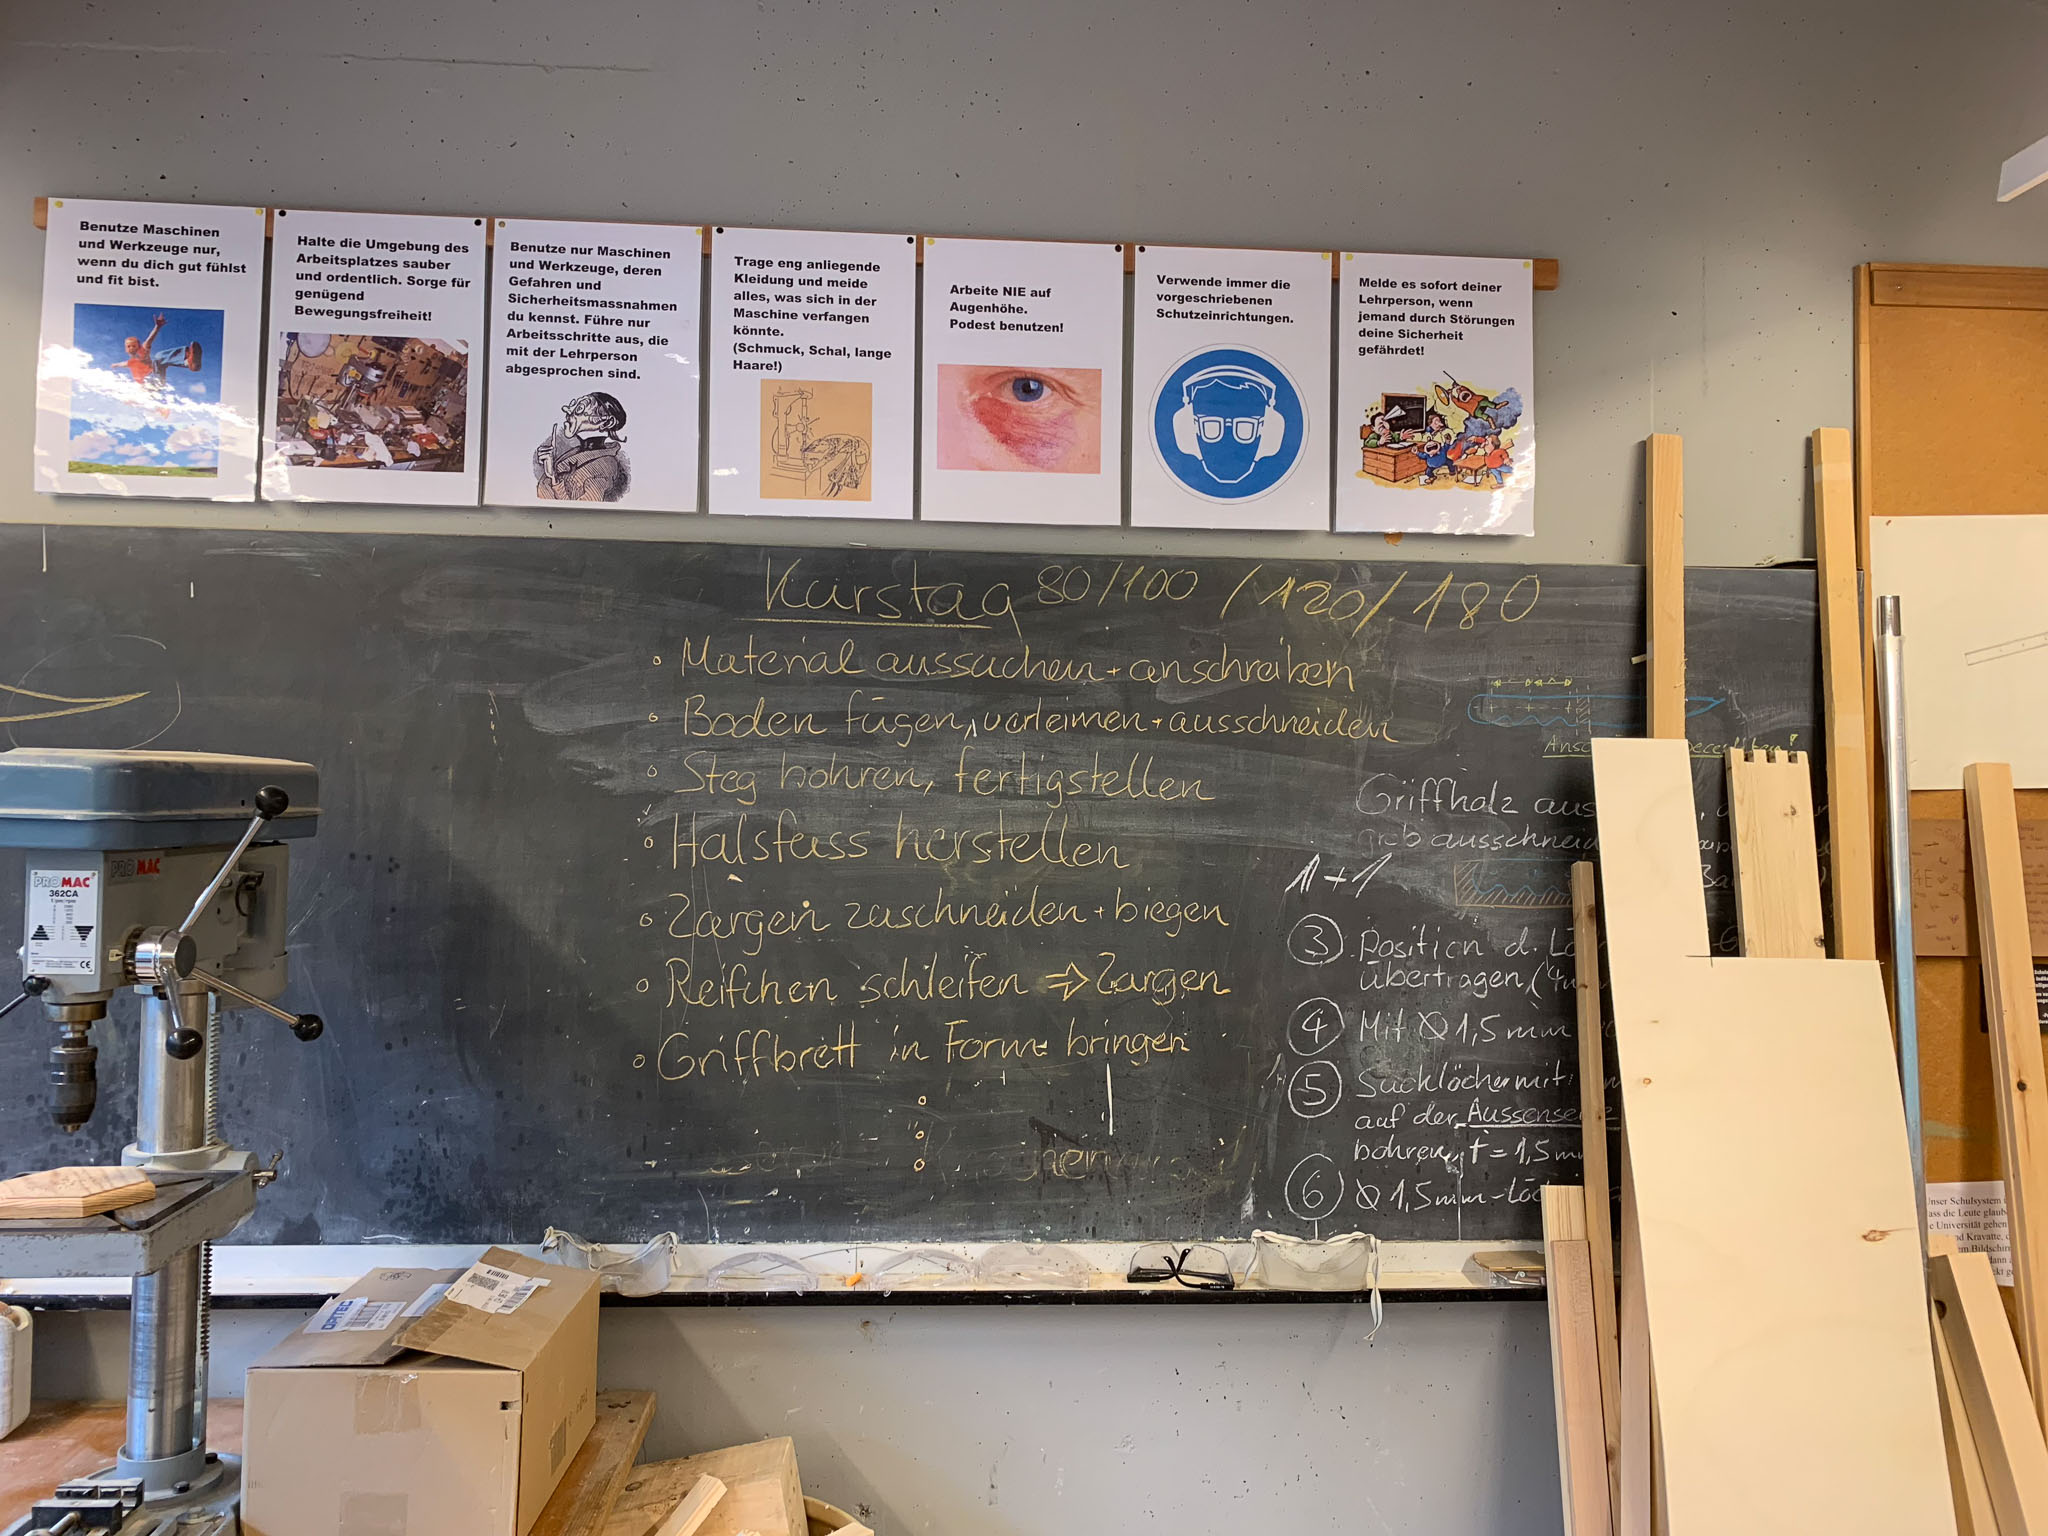 Benutze Maschinen
und Werkzeuge nur,
wenn du dich gut fühlst
und fit bist.
Halte die Umgebung des
Arbeitsplatzes sauber
und ordentlich. Sorge für
genügend
Bewegungsfreiheit!
Benutze nur Maschinen
und Werkzeuge, deren
Gefahren und
Sicherheitsmassnahmen
du kennst. Führe nur
Arbeitsschritte aus, die
mit der Lehrperson
abgesprochen sind.
Trage eng anliegende
Kleidung und meide
alles, was sich in der
Maschine verfangen
könnte.
(Schmuck, Schal, lange
Haare!)
Arbeite NIE auf
Augenhöhe.
Podest benutzen!
Verwende immer die
vorgeschriebenen
Schutzeinrichtungen.
Melde es sofort deiner
Lehrperson, wenn
jemand durch Störungen
deine Sicherheit
gefährdet!
Kurstag 80/100/120/180
Material aussuchen + anschreiben
Boden fügen, verleimen + ausschneiden
Steg bohren, fertigstellen
Halsfuss herstellen
Zargen zuschneiden + biegen
Reifchen schleifen ⇒ Zargen
Griffbrett in Form bringen
Griffholz aus
grob ausschneid
1+1
3 Position d. Lö
übertragen, (
4 Mit Ø 1,5 mm
5 Sacklöcher mit
auf der Aussenseite
bohren, t = 1,5 mm
6 Ø 1,5mm-Lö
PROMAC
PROMAC
362CA
CE
OPITEC
Unser Schulsystem
dass die Leute glaub
Universität gehen
nd Kravatte,